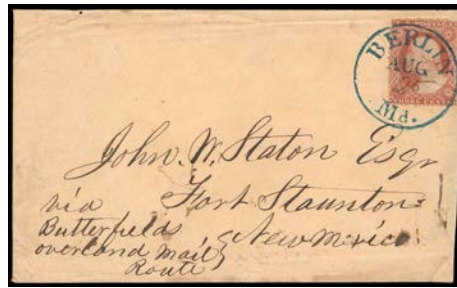 BERLIN
AUG
Md.
THREE CENTS
John. W. Staton Esqr
Fort Staunton
New Mexico
via
Butterfields
overland mail
Route